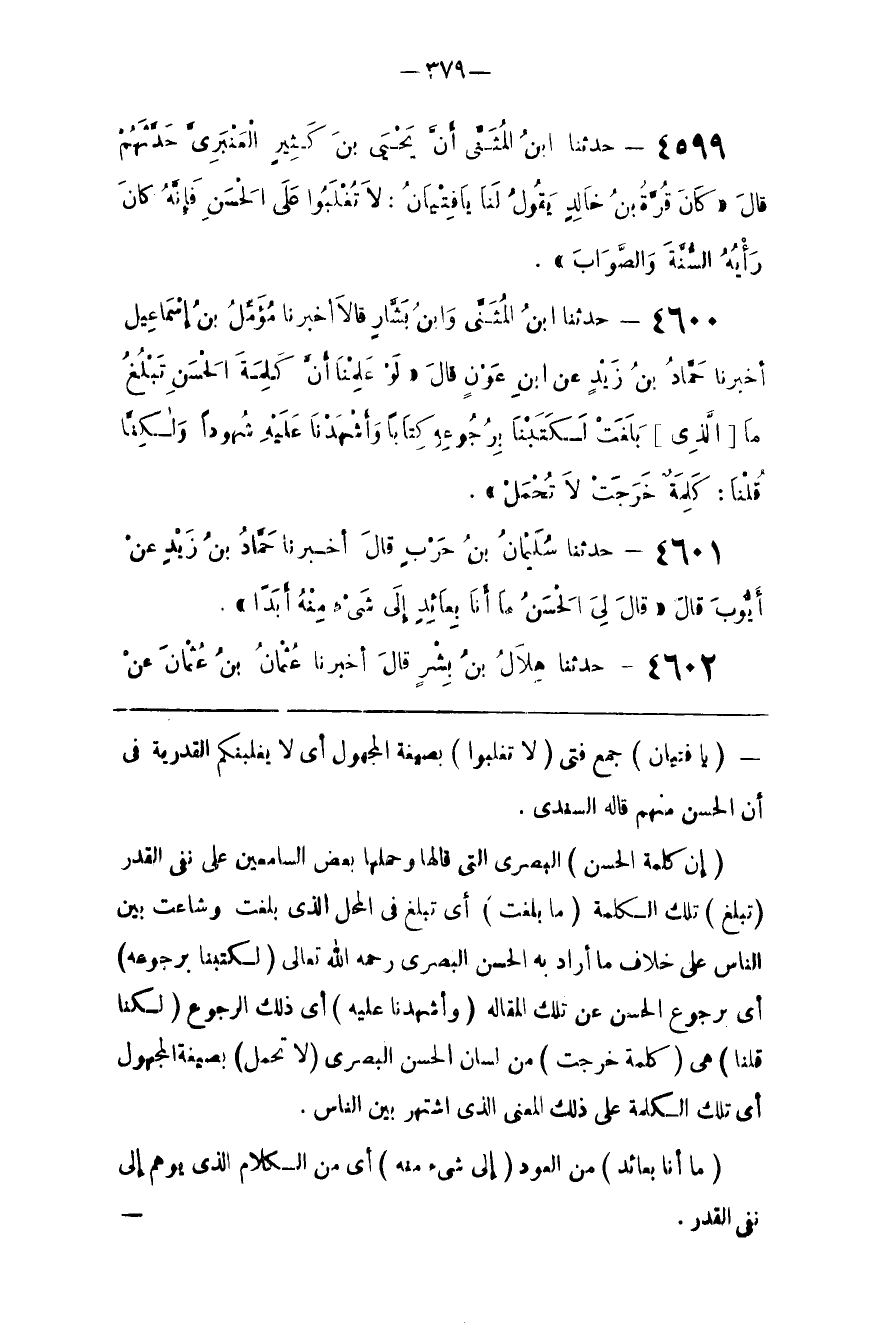 — ٣٧٩ —
٤٥٩٩ — حدثنا ابنُ الْمُثَنَّى أَنَّ يَحْيَى بنَ كَثِيرٍ الْعَنْبَرِىَّ حَدَّثَهُمْ
قالَ « كَانَ قُرَّةُ بنُ خالِدٍ يَقُولُ لَنَا يَافِتْيَانُ : لاَ تُغْلَبُوا عَلَى الْحَسَنِ فَإِنَّهُ كانَ
رَأْيُهُ السُّنَّةَ وَالصَّوَابَ » .
٤٦٠٠ — حدثنا ابنُ الْمُثَنَّى وَابنُ بَشَّارٍ قالاَ أخبرنا مُؤَمَّلُ بنُ إِسْمَاعِيل
أخبرنا حَمَّادُ بنُ زَيْدٍ عن ابنِ عَوْنٍ قالَ « لَوْ عَلِمْنَا أَنَّ كَلِمَةَ الْحَسَنِ تَبْلُغُ
مَا [ الَّذِى ] بَلَغَتْ لَكَتَبْنَا بِرُجُوعِهِ كِتَابًا وَأَشْهَدْنَا عَلَيْهِ شُهُوداً وَلَكِنَّا
قُلْنَا : كَلِمَةٌ خَرَجَتْ لاَ تُحْمَلْ » .
٤٦٠١ — حدثنا سُلَيْمَانُ بنُ حَرْبٍ قالَ أخبرنا حَمَّادُ بنُ زَيْدٍ عنْ
أَيُّوبَ قالَ « قالَ لِىَ الْحَسَنُ مَا أَنَا بِعَائِدٍ إِلَى شَىْءٍ مِنْهُ أَبَدًا » .
٤٦٠٢ — حدثنا هِلاَلُ بنُ بِشْرٍ قالَ أخبرنا عُثْمَانُ بنُ عُثْمَانَ عنْ
— ( يا فتيان ) جمع فتى ( لا تغلبوا ) بصيغة المجهول أى لا يغلبنكم القدرية فى
أن الحسن منهم قاله السندى .
( إن كلمة الحسن ) البصرى التى قالها وحملها بعض السامعين على نفى القدر
( تبلغ ) تلك الكلمة ( ما بلغت ) أى تبلغ فى المحل الذى بلغت وشاعت بين
الناس على خلاف ما أراد به الحسن البصرى رحمه الله تعالى ( لكتبنا برجوعه )
أى برجوع الحسن عن تلك المقاله ( وأشهدنا عليه ) أى ذلك الرجوع ( لكنا
قلنا ) هى ( كلمة خرجت ) من لسان الحسن البصرى ( لا تحمل ) بصيغة المجهول
أى تلك الكلمة على ذلك المعنى الذى اشتهر بين الناس .
( ما أنا بعائد ) من العود ( إلى شىء منه ) أى من الكلام الذى يوهم إلى
نفى القدر . —